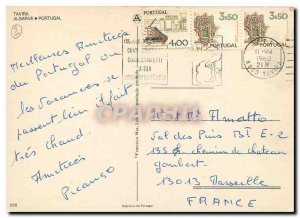 TAVIRA
ALGARVE • PORTUGAL
PORTUGAL
4.00
PORTUGAL
3$50
PORTUGAL
3$50
Meilleures Amitiés
du Portugal où
les vacances se
passent bien il fait
très chaud.
Amitiés
Picanso
Mr et Mme Amatto
Val des Pins Bt E-2
135 Chemin de chateau
Gombert
13013 Marseille
FRANCE